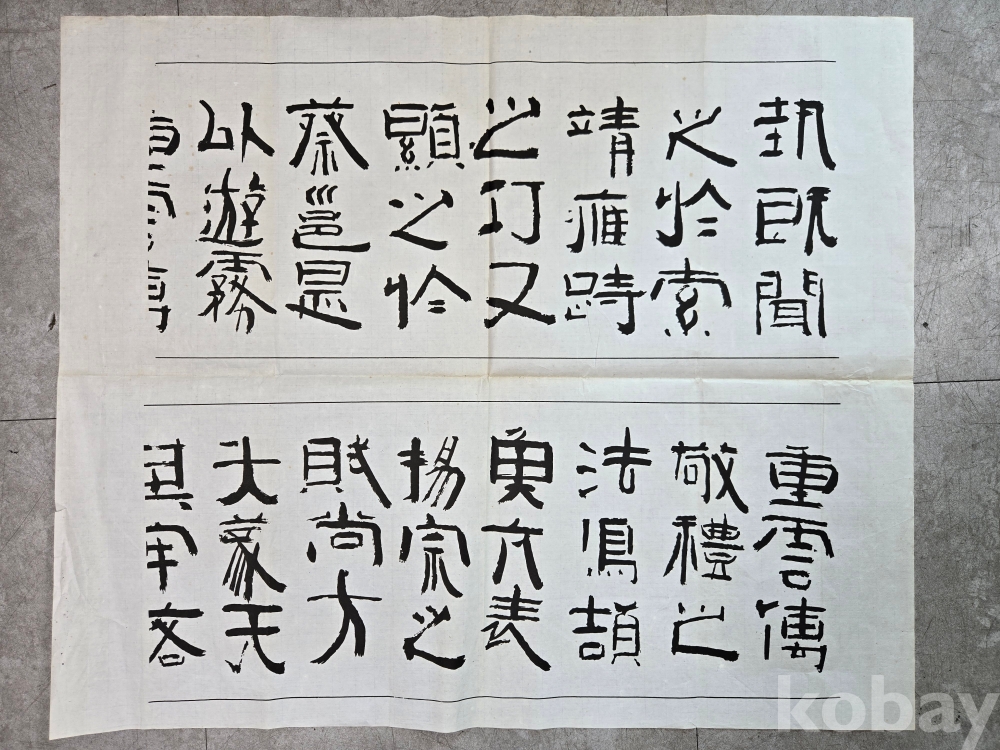 執既聞
之於索
靖雍時
之訂又
顯之於
蔡邕是
以遊霧
重雲傳
敬禮之
法鳴頡
衣表
揚宗之
賦尚方
大篆天
其宇客
kobay